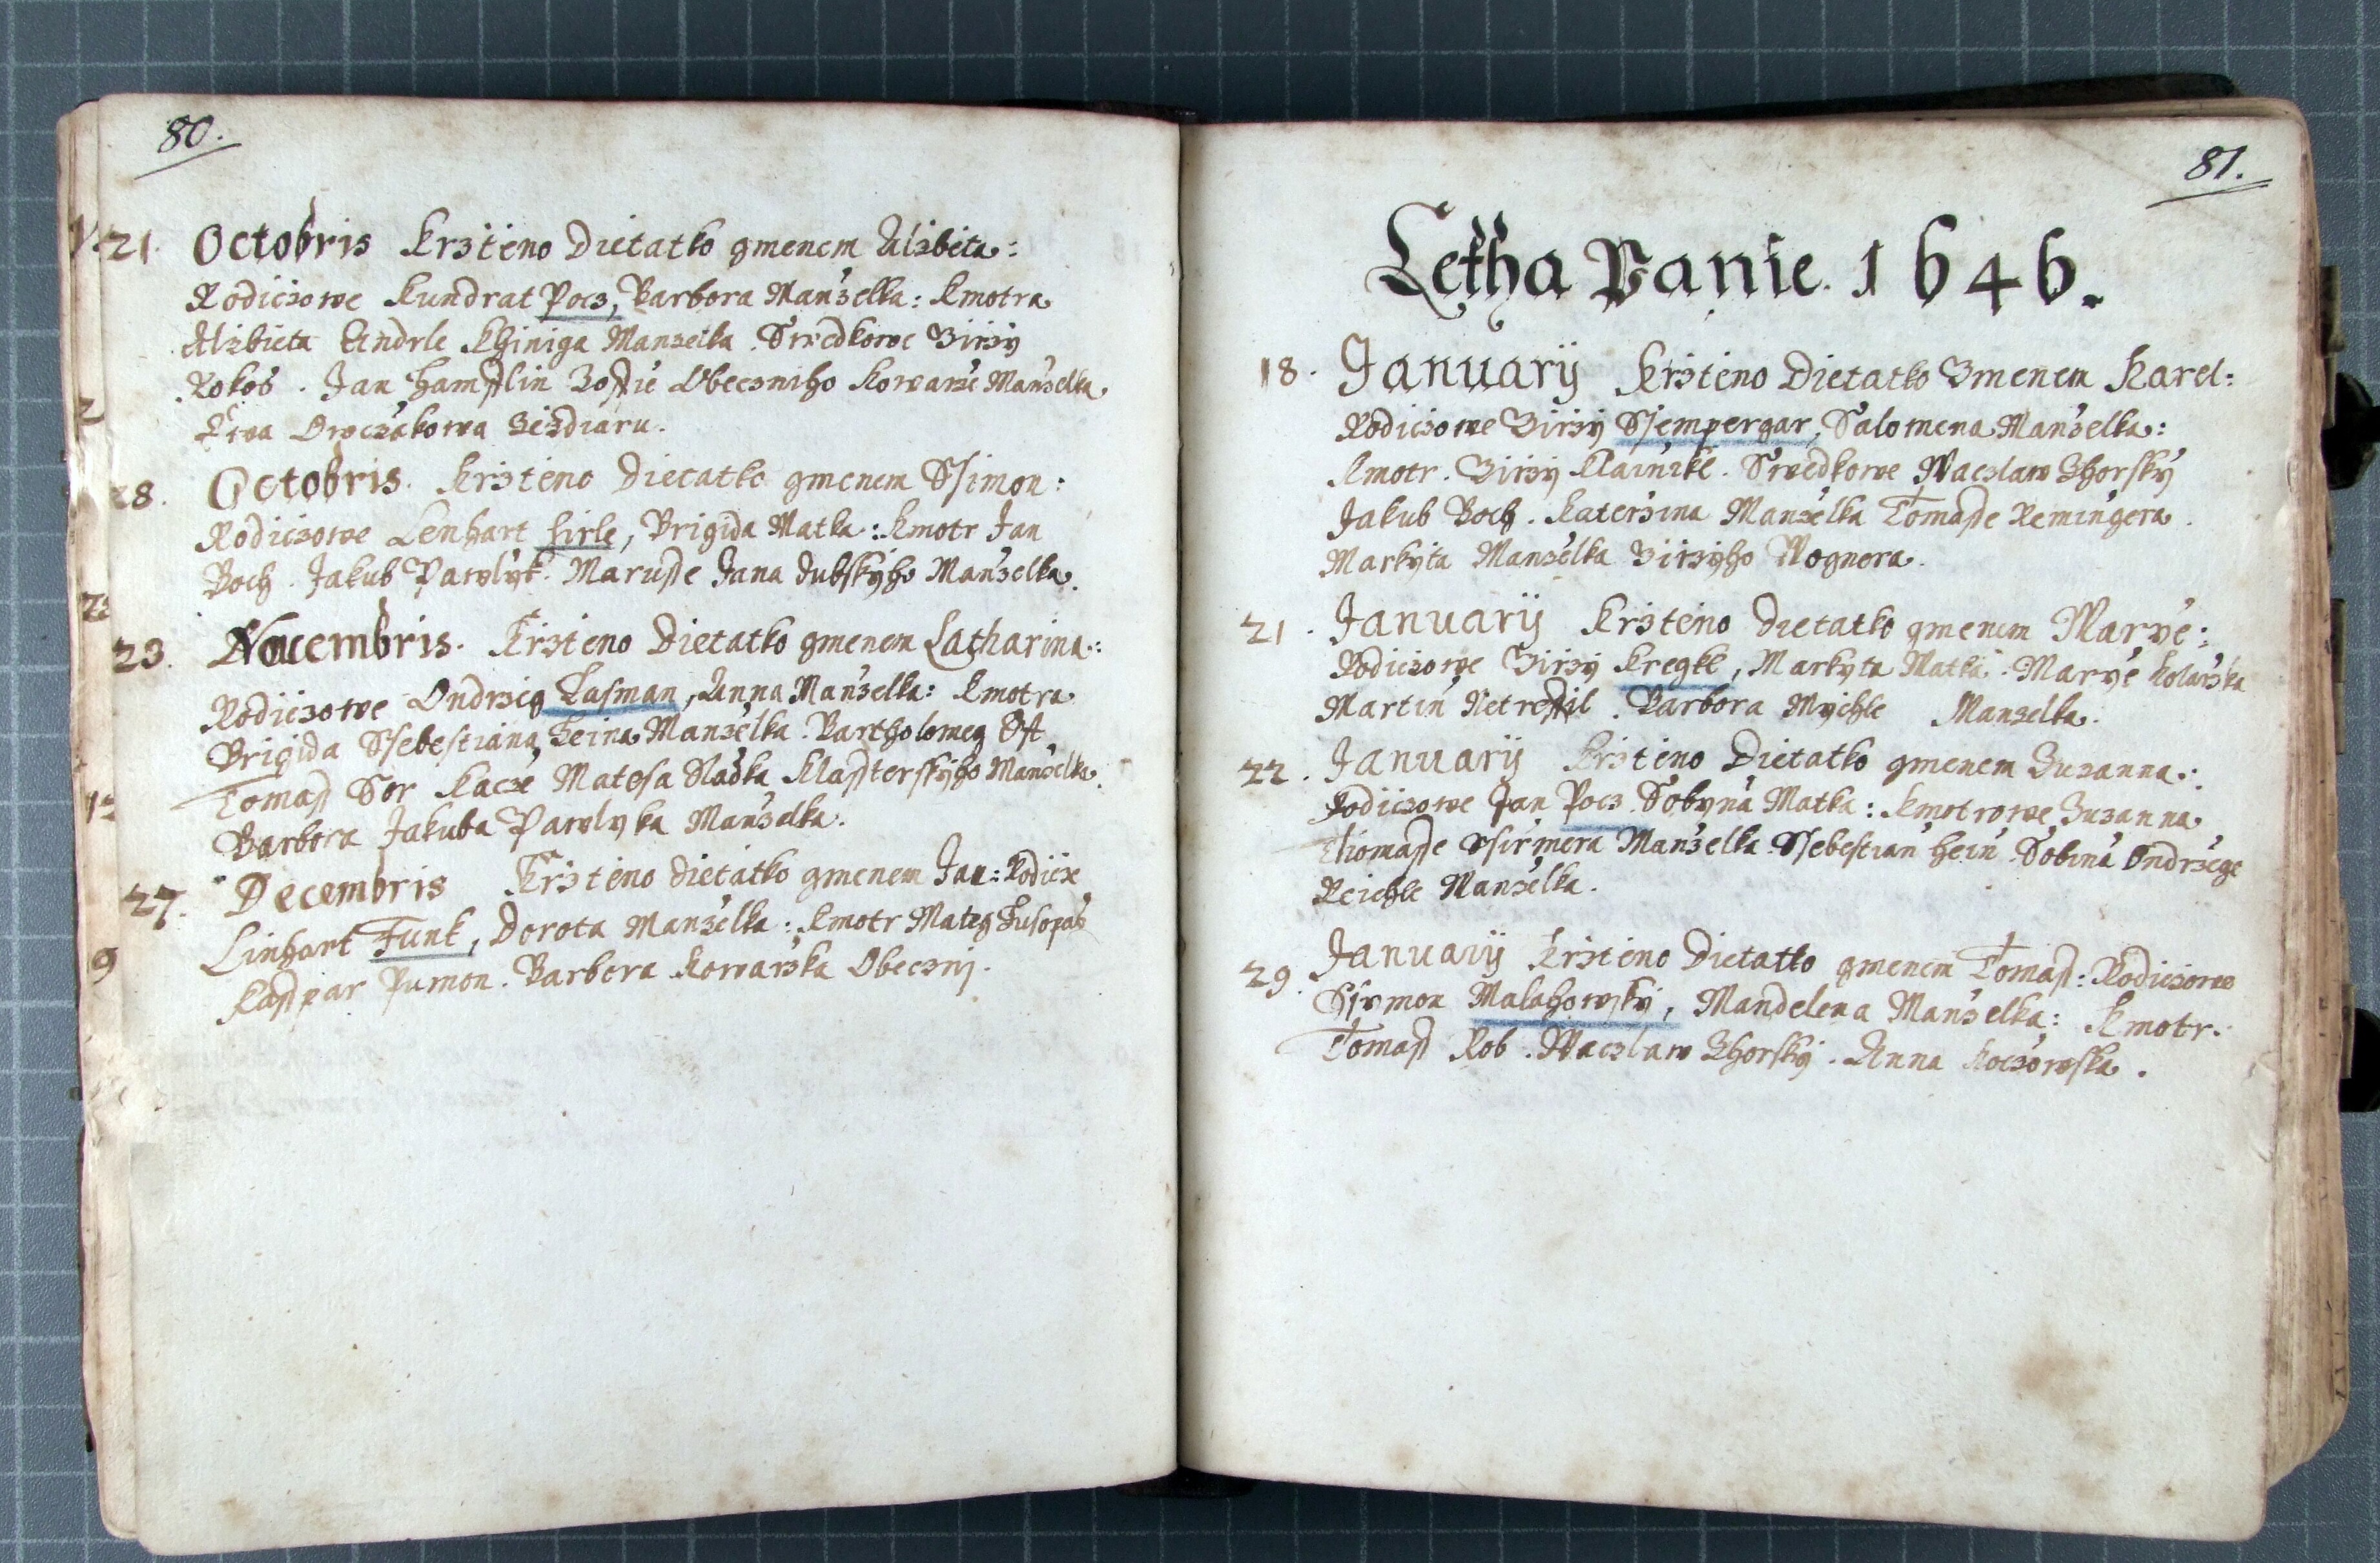 80.
21. Octobris Krzteno Dietatko gmenem Alzbieta:
Rodiczowe Kundrat Pocz, Barbora Manzelka: Kmotra
Alzbieta Andrle Manzelka. Swedkowe Girzy
Rokos. Jan Zoffie Obeczniho Kowarze Manzelka.
Ewa Owczakowa
28. Octobris. Krzteno Dietatko gmenem Ssimon:
Rodiczowe Lenhart hirle, Brigida Matka: Kmotr Jan
Boch. Jakub Pawlyk. Marusse Jana Dubskyho Manzelka.
23. Nouembris. Krzteno Dietatko gmenem Katharina:
Rodiczowe Ondrzeg Tasman, Anna Manzelka: Kmotra
Brigida Ssebestiana Heina Manzelka. Bartholomeg Ost
Tomass Sor Kacze Matesa Sladka Klassterskyho Manzelka.
Barbora Jakuba Pawlyka Manzelka.
27. Decembris Krzteno dietatko gmenem Jan: Rodicze
Linhart Funk, Dorota Manzelka: Kmotr Mateg
Kasspar Pumon. Barbora Kowarzka Obeczni.
81.
Letha Panie. 1646.
18. Januarij Krzteno Dietatko Gmenem Karel:
Rodiczowe Girzy Ssempergar, Salomena Manzelka:
Kmotr. Girzy Klainikl. Swedkowe Waczlaw Zhorsky
Jakub Boch. Katerzina Manzelka Tomasse Remingera.
Markyta Manzelka Girzyho Wognera.
21. Januarij Krzteno Dietatko gmenem Marye:
Rodiczowe Girzy Kregkl, Markyta Matka. Marye Kolarzka
Martin Netressil. Barbora Mychle Manzelka.
22. Januarij Krzteno Dietatko gmenem Zuzanna:
Rodiczowe Jan Pocz. Sobyna Matka: Kmotrowe Zuzanna
Thomasse Manzelka. Ssebestian hein. Sobina Ondrzege
Reichle Manzelka.
29. Januarij Krzteno Dietatko gmenem Tomass: Rodiczowe
Ssymon Malahowsky, Mandelena Manzelka: Kmotr.
Tomass Rob. Waczlaw Zhorsky. Anna Koczowska.